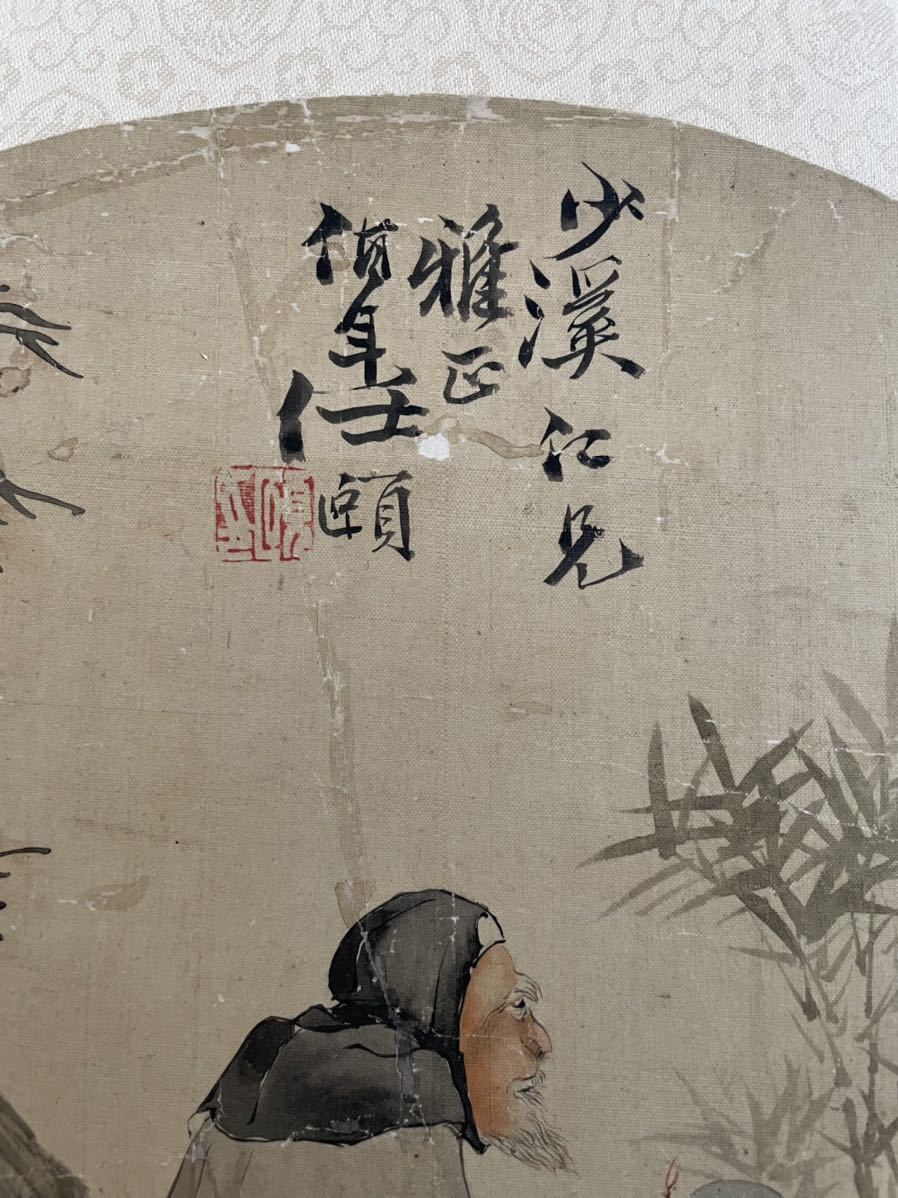 少溪仁兄
雅正
伯年任頤